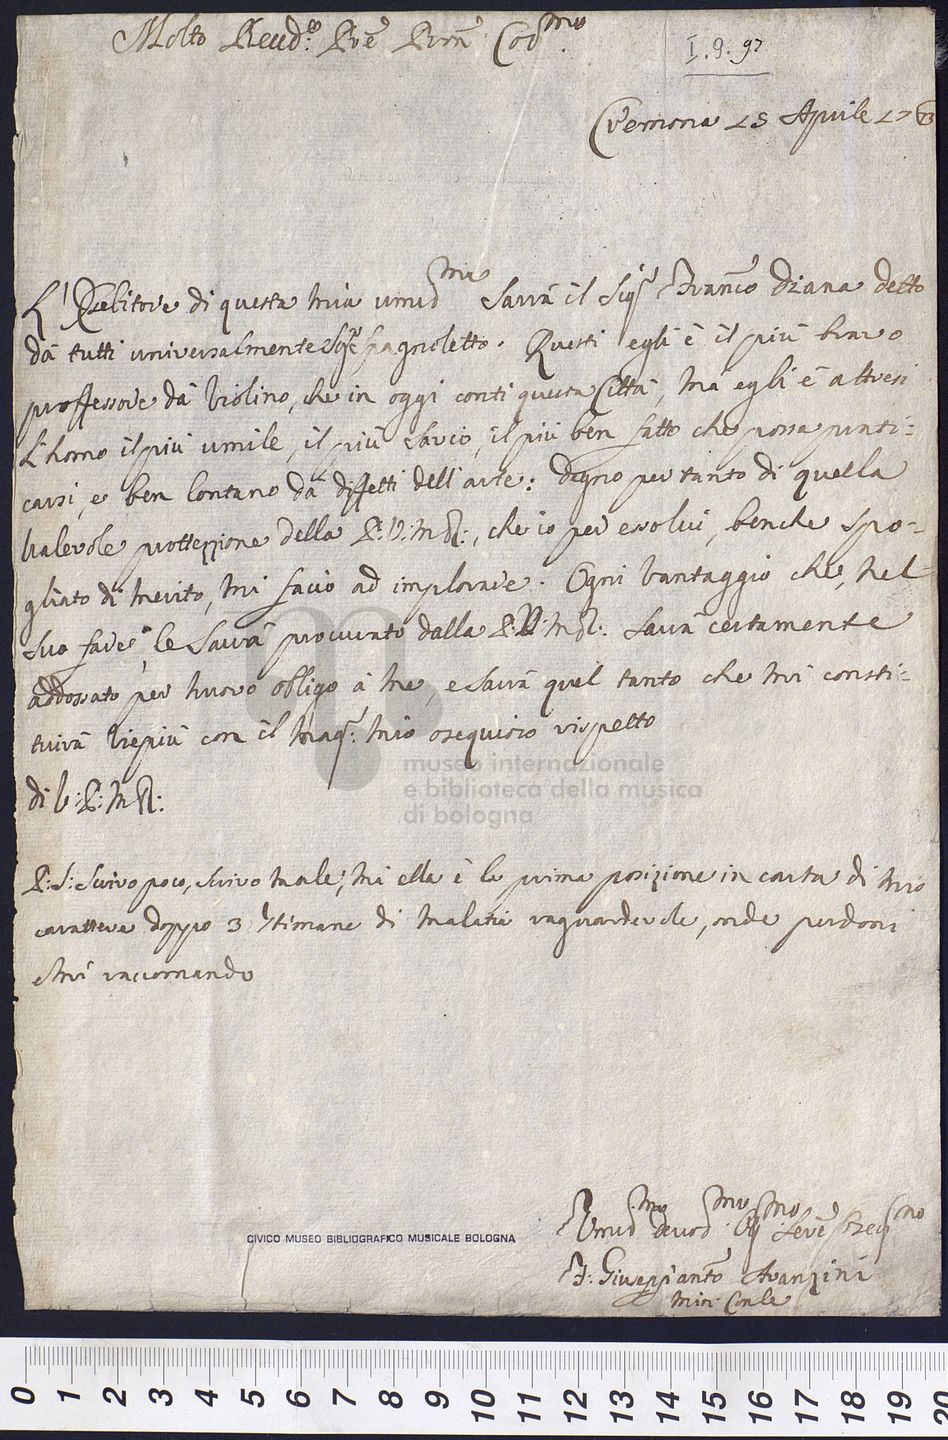 Molto Revd.º P̃re Pron̄ Col.mo
I. 9. 97
Cremona 25 Aprile 17
L' Debitore di questa mia umid.ma Sarrà il Sig.r Franc.o Diana detto
dà tutti universalmente Spagnoletto. Questi egli è il più bravo
professore dà Violino, che in oggi conti questa Città, mà egli è altresi
L'homo il più umile, il più Savio, il più ben fatto che possa prati=
carsi, e ben lontano dà diffetti dell'arte: degno per tanto di quella
valevole prottezzione della P: V: M R:, che io per esolui, benche spo=
gliato di merito, mi facio ad implorare. Ogni vantaggio che, nel
suo fare, le Sarrà proccurato dalla P: V: M R: Sarrà certamente
addossato per nuovo obligo à me, e Sarrà quel tanto che mi consti=
tuirà viepiù con il mag.r mio osequioso rispetto
di V: P: M R:
P: S: Scrivo poco, scrivo male; mà ella è la prima posizione in carta di mio
carattere doppo 3 Stimane di malatia raguardevole, onde perdoni
e mi raccomando
Umid.mo Devod.mo Obg.mo
F: Giuseppiant.o Avanzini
Min: Con.le
museo internazionale
e biblioteca della musica
di bologna
CIVICO MUSEO BIBLIOGRAFICO MUSICALE BOLOGNA
0 1 2 3 4 5 6 7 8 9 10 11 12 13 14 15 16 17 18 19 20